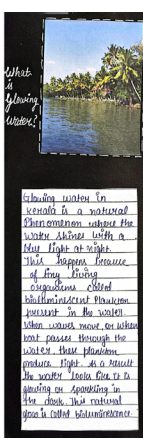 What
is
Glowing
Water?
Glowing water in
kerala is a natural
Phenomenon where the
water shines with a
blue light at night.
This happens because
of tiny living
organisms called
bioluminescent plankton
present in the water.
When waves move, or when
boat passes through the
water, these plankton
produce light. As a result
the water looks like it is
glowing or sparkling in
the dark. This natural
glow is called bioluminescence.